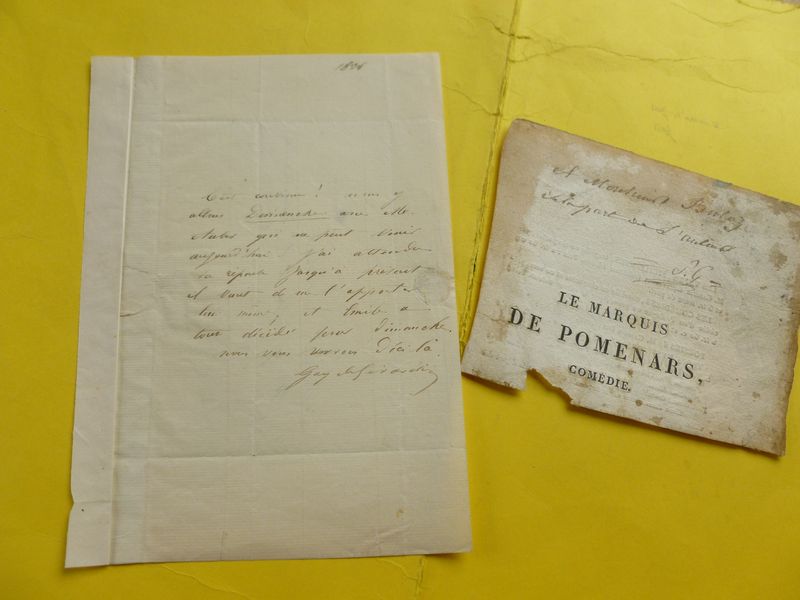 1836
C'est convenu ! nous y
allons Dimanche avec Mr
Auber qui ne peut venir
aujourd'hui. j'ai attendu
sa réponse jusqu'à présent
il vient de me l'apporter
lui même, et Emile a
tout décidé pour dimanche.
nous vous verrons d'ici là.
Gay de Girardin
A Monsieur
de la part de l'auteur
S. G.
LE MARQUIS
DE POMENARS,
COMÉDIE.